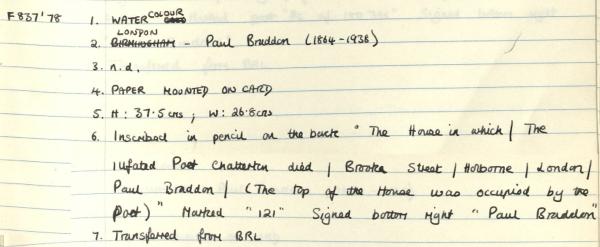 F837'78 1. WATERCOLOUR
LONDON
2. BIRMINGHAM - Paul Braddon (1864-1938)
3. n.d.
4. PAPER MOUNTED ON CARD
5. H: 37.5cms ; W: 26.8cms
6. Inscribed in pencil on the back " The House in which | The
illfated Poet Chatterton died | Brooke Street | Holborne | London |
Paul Braddon | (The top of the House was occupied by the
Poet) " Marked "121" Signed bottom right " Paul Braddon"
7. Transferred from BRL